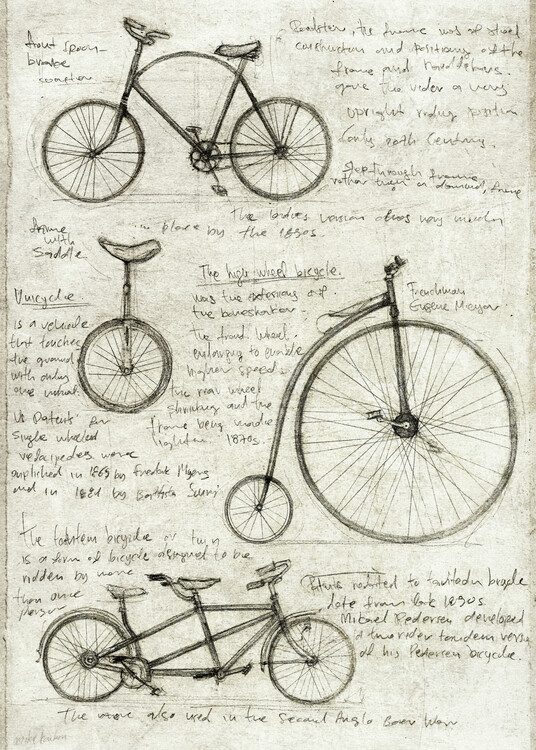 front spoon-
brake
the frame was of steel
construction and positions of the
frame and
gave the rider a very
upright riding position
early 20th Century.
Step through frame,
rather than a diamond frame
The ladies version was very much
in place by the 1890s.
with
Saddle
Unicycle
is a vehicle
that touches
the ground
with only
one wheel
US Patents for
single wheeled
velocipedes were
published in 1869 by Fredrick Myers
and in 1881 by Battista Scuri
The high-wheel bicycle.
was the of
the boneshaker.
the front wheel.
enlarging to enable
higher speeds
the rear wheel
shrinking and the
frame being made
lighter. 1870s.
Frenchman
Eugene Meyer
The tandem bicycle or twin
is a form of bicycle designed to be
ridden by more
than one
person
related to tandem bicycle
date from late 1890s
Mikael Pedersen developed
a two rider tandem version
of his Pedersen bicycle.
The were also used in the Second Anglo Boer War